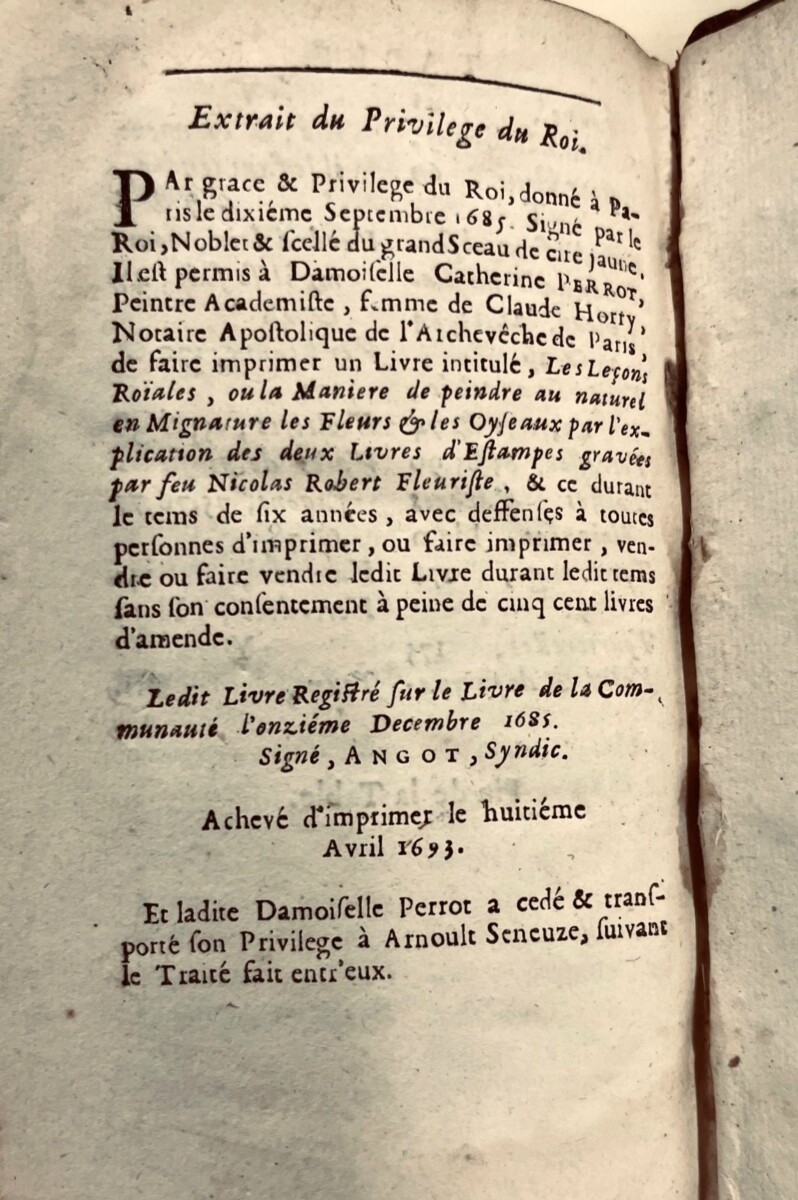 Extrait du Privilege du Roi.
PAr grace & Privilege du Roi, donné à Pa-
ris le dixiéme Septembre 1685. Signé par le
Roi, Noblet & ſcellé du grand Sceau de cire jaune,
Il eſt permis à Damoiſelle Catherine PERROT,
Peintre Academiſte, femme de Claude Horry,
Notaire Apoſtolique de l'Archevêché de Paris,
de faire imprimer un Livre intitulé, Les Leçons
Roïales, ou la Maniere de peindre au naturel
en Mignature les Fleurs & les Oyſeaux par l'ex-
plication des deux Livres d'Eſtampes gravées
par feu Nicolas Robert Fleuriſte, & ce durant
le tems de ſix années, avec deffenſes à toutes
perſonnes d'imprimer, ou faire imprimer, ven-
dre ou faire vendre ledit Livre durant ledit tems
ſans ſon conſentement à peine de cinq cent livres
d'amende.
Ledit Livre Regiſtré ſur le Livre de la Com-
munauté l'onziéme Decembre 1685.
Signé, ANGOT, Syndic.
Achevé d'imprimer le huitiéme
Avril 1693.
Et ladite Damoiſelle Perrot a cedé & tranſ-
porté ſon Privilege à Arnoult Seneuze, ſuivant
le Traité fait entr'eux.